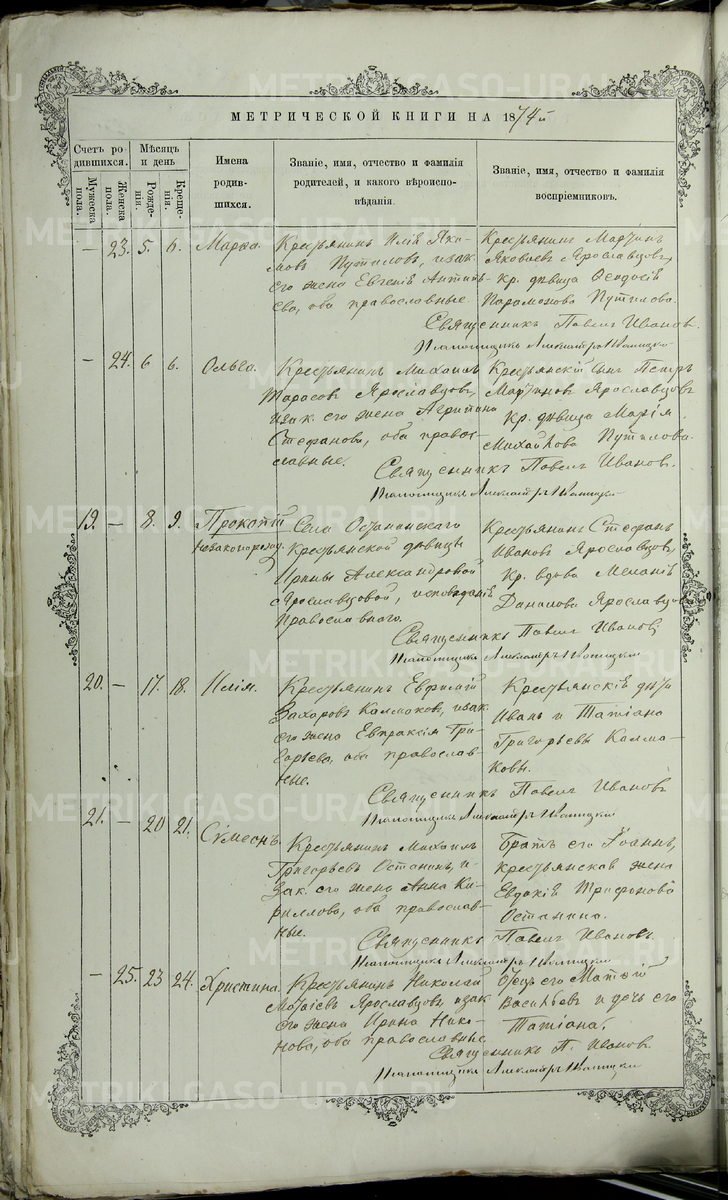 МЕТРИЧЕСКОЙ КНИГИ НА 1874й
Счетъ родившихся.
Мужеска пола.
Женска пола.
Мѣсяцъ и день
Рожденія.
Крещенія.
Имена родившихся.
Званіе, имя, отчество и фамилія родителей, и какого вѣроисповѣданія.
Званіе, имя, отчество и фамилія воспріемниковъ.
— 23. 5. 6. Марѳа.
Крестьянинъ Илія Яковлевъ Путиловъ, и зак.
его жена Евгенія
ева, оба православные.
Крестьянинъ Мартинъ
Яковлевъ Ярославцовъ,
кр. дѣвица Ѳеодосія
Парамонова Путилова.
Священникъ Павелъ Ивановъ.
Александръ
— 24. 6 6. Ольга.
Крестьянинъ Михаилъ
Тарасовъ Ярославцовъ,
и зак. его жена Агрипина
Стефанова, оба православные.
Крестьянскій сынъ Петръ
Мартиновъ Ярославцовъ
Кр. дѣвица Марія
Михайлова Путилова.
Священникъ Павелъ Ивановъ.
Александръ
19. — 8. 9. Прокопій
незаконорожд.
Села Останинскаго
Крестьянской дѣвицы
Ирины Александровой
Ярославцовой, исповѣданія
Православнаго.
Крестьянинъ Стефанъ
Ивановъ Ярославцовъ,
Кр. вдова Меланія
Данилова Ярославцова
Священникъ Павелъ Ивановъ
Александръ
20. — 17. 18. Илія.
Крестьянинъ Евфимій
Захаровъ Калмаковъ, и зак.
его жена Евпраксія Григорьева, оба православные.
Крестьянскія дѣти
Иванъ и Татіана
Григорьевы Калмаковы.
Священникъ Павелъ Ивановъ
Александръ
21. — 20 21. Сумеонъ.
Крестьянинъ Михаилъ
Григорьевъ Останинъ, и
зак. его жена Анна Кириллова, оба православные.
Братъ его Іоаннъ,
крестьянская жена
Евдокія Трифонова
Останина.
Священникъ Павелъ Ивановъ.
Александръ
— 25. 23 24. Христина.
Крестьянинъ Николай
Матѳіевъ Ярославцовъ и зак.
его жена Ирина Никонова, оба православные.
Отецъ его Матѳій
Васильевъ и дочь его
Татіана.
Священникъ П. Ивановъ.
Александръ
METRIKI.GASO-URAL.RU